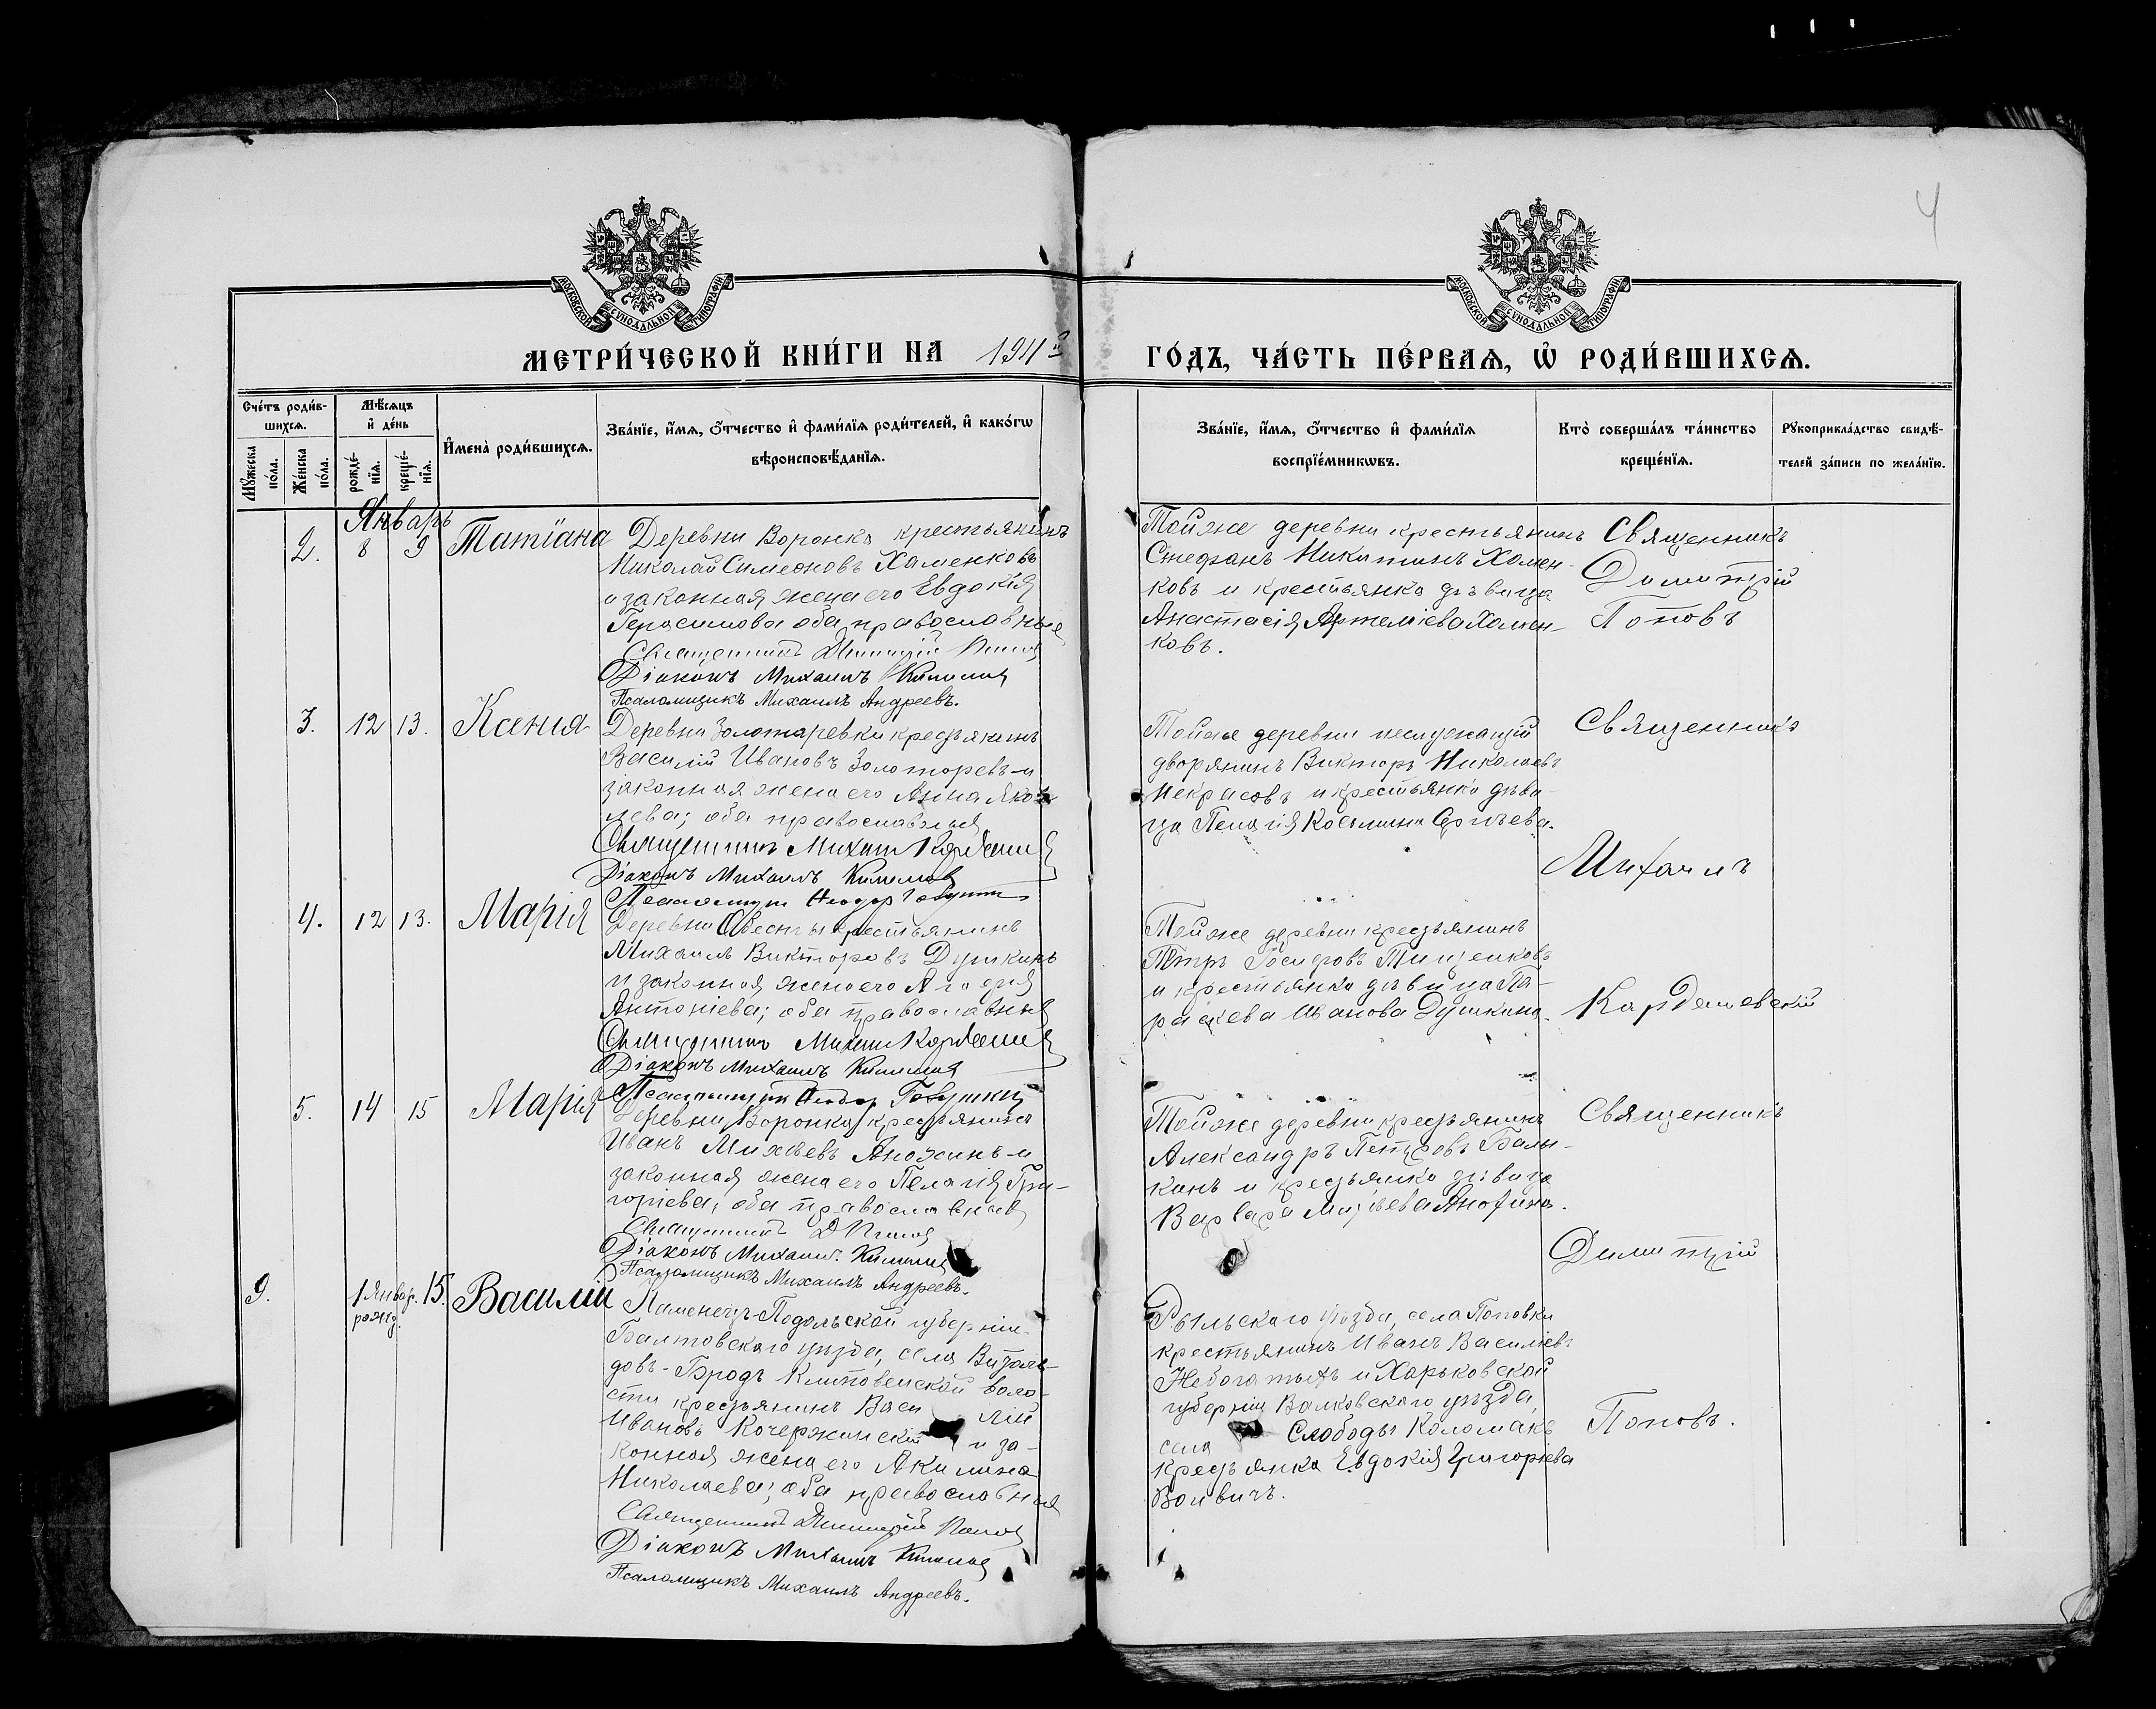 4
МОСКОВСКОЙ СѴНОДАЛЬНОЙ ТИПОГРАФІИ
МОСКОВСКОЙ СѴНОДАЛЬНОЙ ТИПОГРАФІИ
МЕТРИ́ЧЕСКОЙ КНИ́ГИ НА 1911й ГО́ДЪ, ЧА́СТЬ ПЕ́РВАѦ, Ѡ҆ РОДИ́ВШИХСѦ.
Сче́тъ роди́в-
шихсѧ.
Мꙋ́жеска
по́ла.
Же́нска
по́ла.
Мѣ́сѧцъ
и҆ де́нь
рожде́-
нїѧ.
креще́-
нїѧ.
И҆мена̀ роди́вшихсѧ.
Зва́нїе, и҆́мѧ, ѻ҆́тчество и҆ фами́лїѧ роди́телей, и҆ како́гѡ
вѣроисповѣ́данїѧ.
Зва́нїе, и҆́мѧ, ѻ҆́тчество и҆ фами́лїѧ
воспрїе́мникѡвъ.
Кто̀ соверша́лъ та́инство
креще́нїѧ.
Рꙋкоприкла́дство свидѣ́-
телей за́писи по жела́нїю.
Январь
2. 8 9 Татіана
Деревни Воронка крестьянинъ
Николай Симеоновъ Хаменковъ
и законная жена его Евдокія
Герасимова оба православные
Священникъ Димитрій Попов
Діаконъ Михаилъ
Псаломщикъ Михаилъ Андреевъ.
Той же деревни крестьянинъ
Стефанъ Никитинъ Хомен-
ковъ и крестьянка дѣвица
Анастасія Артеміева Хомен-
ковъ.
Священникъ
Димитрій
Поповъ
3. 12 13. Ксенія
Деревни Золотаревки крестьянинъ
Василій Ивановъ Золоторевъ и
законная жена его Анна Яков
лева; оба православныя
Священникъ Михаил
Діаконъ Михаилъ
Псаломщикъ Ѳеодор
Той же деревни
дворянинъ Викторъ Николаевъ
Некрасовъ и крестьянка дѣви-
ца Пелагія
Священникъ
Михаилъ
Кардашевскій
4. 12 13. Марія
Деревни крестьянинъ
Михаилъ Викторовъ Душкинъ
и законная жена его
Антоніева; оба православныя
Священникъ Михаил
Діаконъ Михаилъ
Псаломщик Ѳеодор
Той же деревни крестьянинъ
Петръ Іосифовъ Тищенковъ
и крестьянка дѣвица Па-
раскева Иванова Душкина.
5. 14 15 Марія
Деревни Воронка крестьянинъ
Иванъ Михѣевъ Анохинъ и
законная жена его Пелагія Гри-
горіева; оба православныя
Священникъ Д Попов
Діаконъ Михаилъ
Псаломщикъ Михаилъ Андреевъ.
Той же деревни крестьянинъ
Александръ Петровъ Балы-
кинъ и крестьянка дѣвица
Варвара Михѣева Анохина.
Священникъ
Димитрій
Поповъ.
9. 1 Январ. 15. Василій
рожд.
Каменецъ-Подольской губерніи
Балтовскаго уѣзда, села
довъ-Бродъ воло-
сти крестьянинъ Васи лій
Ивановъ Кочержинскій и за-
конная жена его Акилина
Николаева; оба православныя
Священникъ Димитрій Попов
Діаконъ Михаилъ
Псаломщикъ Михаилъ Андреевъ.
Рыльскаго уѣзда, села Поповки
крестьянинъ Иванъ Василіевъ
Небогатыхъ и Харьковской
губерніи Валковскаго уѣзда,
села Слободы Коломакъ
крестьянка Евдокія Григоріева